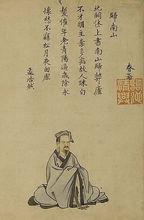 歸南山
北闕休上書南山歸敝廬
不才明主棄多病故人疎白
髮催年老青陽逼歲除永
懷愁不寐松月夜窗虛
孟浩然